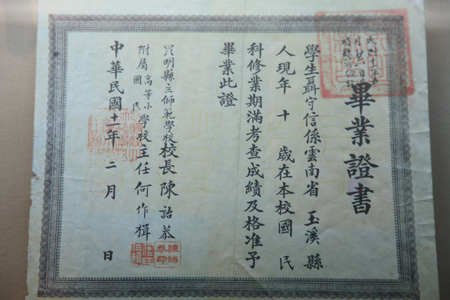 畢業證書
學生聶守信係雲南省玉溪縣
人現年十歲在本校國民
科修業期滿考查成績及格准予
畢業此證
昆明縣立師範學校校長陳詒恭
附屬高等小國民學校主任何作楫
中華民國十一年二月日